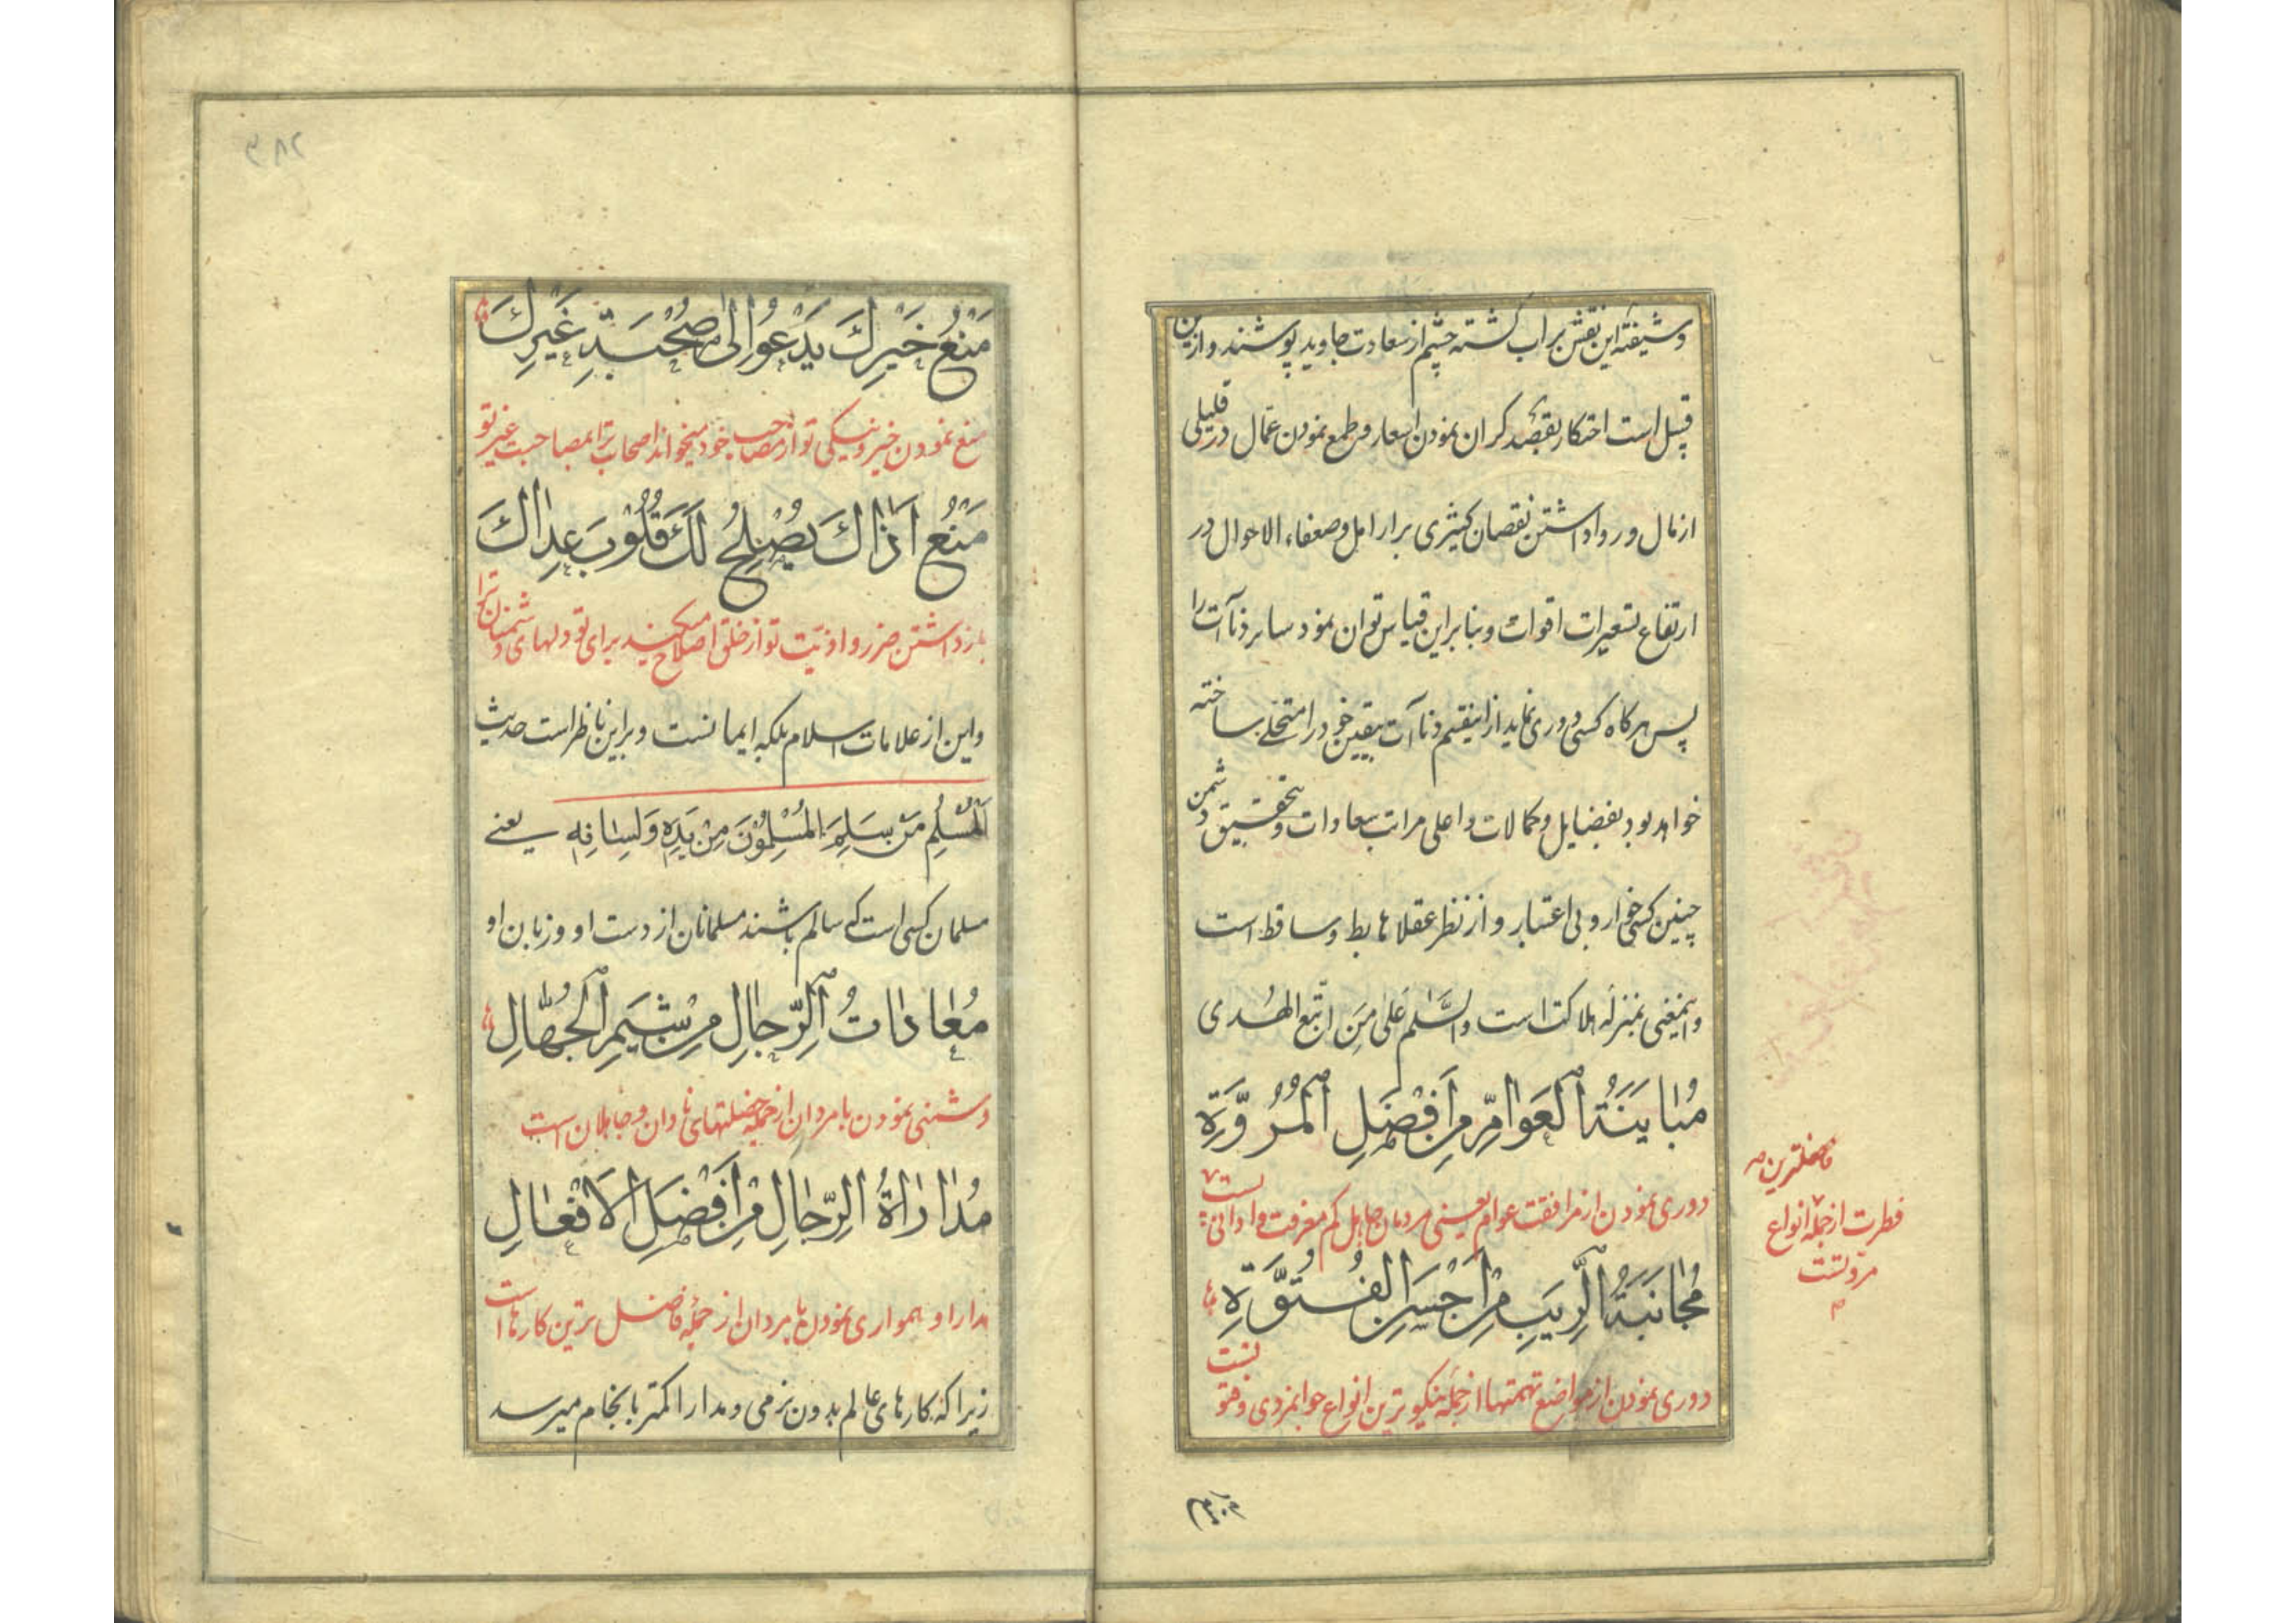 وشیفته این نقش بر اب کشته چشم از سعادت جاوید پوشند و ازین
قبیل است احتکار بقصد کران نمودن اسعار و طمع نمودن عمال در قلیلی
از مال و روا داشتن نقصان کثیری بر ارامل و ضعفاء الاحوال در
ارتفاع تسعیرات اقوات و بنا بر این قیاس توان نمود سایر دنآآت را
پس هرکاه کسی دوری نماید از اینقسم دناآت بیقین خود را متحلے ساخته
خواهد بود بفضایل و کمالات و اعلی مراتب سعادات و بتحقیق دشمن
چنین کسی خوار و بی اعتبار و از نظر عقلا هابط و ساقط است
و اینمعنی بمنزله هلاکت است والسَّلٰم عَلیٰ مَنِ اتَّبع الهُدی
مُبٰایَنَةُ العَوٰامِّ مِنْ اَفْضَلِ الْمُرُوَّةِ
دوری نمودن از مرافقت عوام یعنی مردمان جاهل کم معرفت و ادانی پست
فطرت از جمله انواع
فاضلترین
مروتست
مُجٰانَبَةُ الرِّیَبِ مِنْ اَحْسَنِ الْفُتُوَّةِ
دوری نمودن از مواضع تهمتها از جمله نیکوترین انواع جوانمردی و فتوتست
منع خیر
مَنْعُ خَیْرِكَ یَدْعُوا اِلیٰ صُحْبَةِ غَیْرِكَ
منع نمودن خیر و نیکی تو از مصاحب خود میخواند اصحاب ترا بمصاحبت غیر تو
مَنْعُ اَذٰاكَ یُصْلِحُ لَكَ قُلُوْبَ عِدٰاكَ
بازداشتن ضرر و اذیّت تو از خلق اصلاح میکند برای تو دلهای دشمنان ترا
و این از علامات اسلام بلکه ایمانست و بر این ناظر است حدیث
اَلْمُسْلِمُ مَنْ سَلِمَ الْمُسْلِمُوْنَ مِنْ یَدِهٖ وَلِسٰانِهٖ یعنے
مسلمان کسی است که سالم باشند مسلمانان از دست او و زبان او
مُعٰادٰاتُ الرِّجٰالِ مِنْ شِیَمِ الْجُهّٰالِ
دشمنی نمودن با مردان از جمله خصلتهای نادان و جاهلان است
مُدٰارٰاةُ الرِّجٰالِ مِنْ اَفْضَلِ الْاَفْعٰالِ
مدارا و همواری نمودن با مردان از جمله فاضل ترین کارها است
زیرا که کارهای عالم بدون نرمی و مدارا کمتر بانجام میرسد
۲۸۹